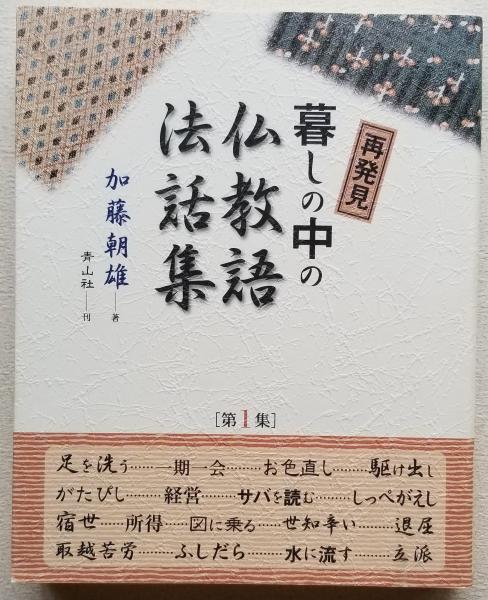 再発見
暮しの中の
仏教語
法話集
加藤朝雄――著
青山社――刊
[第1集]
足を洗う……一期一会………お色直し………駆け出し
がたぴし………経営………サバを読む………しっぺがえし
宿世……所得……図に乗る……世知辛い……退屈
取越苦労………ふしだら………水に流す………立派